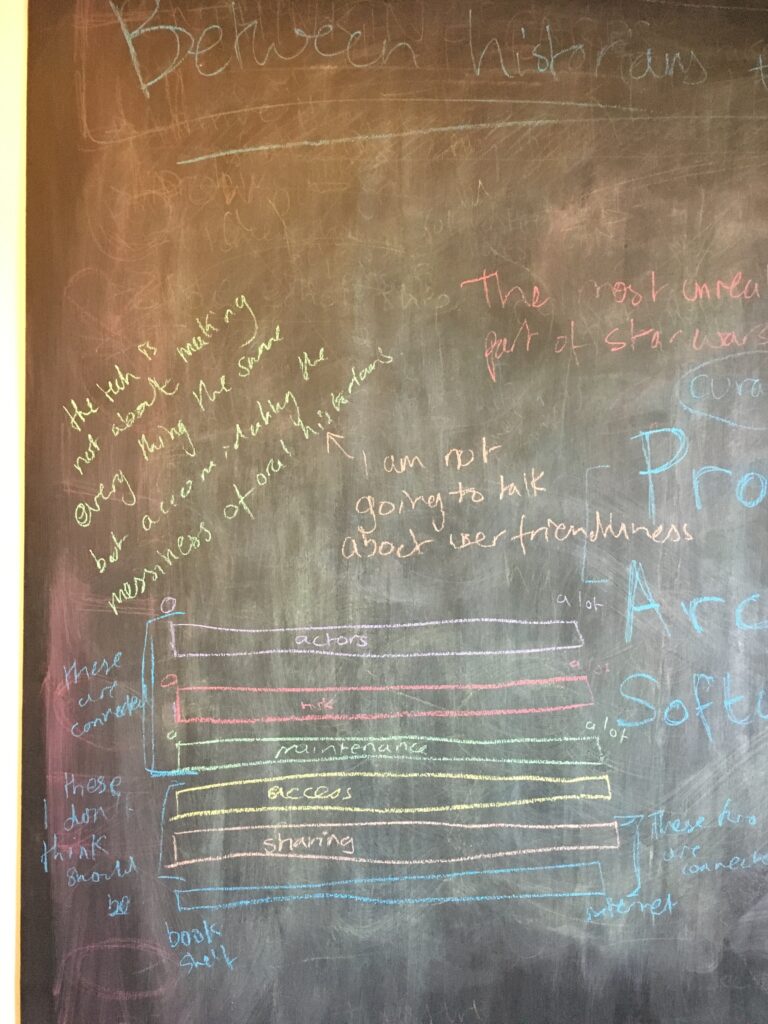 Between historians
The most unrea
part of star wars
the tech is
not about making
every thing the same
but accomidating the
messiness of oral historians
I am not
going to talk
about user friendliness
cura
Pro
Arc
Softw
0
a lot
actors
these
are
connected
0
a lot
risk
0
a lot
maintenance
these
I don't
think
should
be
access
sharing
These two
are
connecte
book
shelf
internet